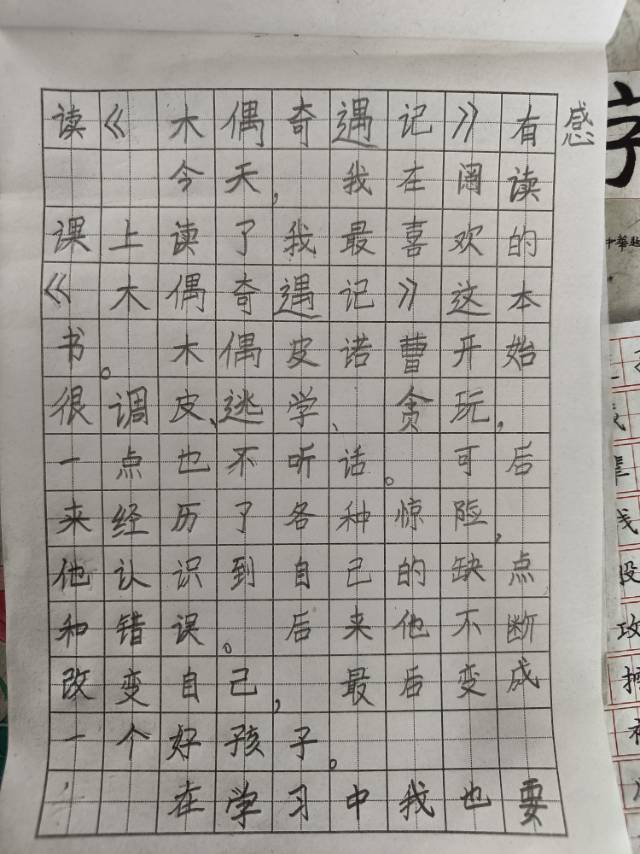 读《木偶奇遇记》有感
今天，我在阅读
课上读了我最喜欢的
《木偶奇遇记》这本
书。木偶皮诺曹开始
很调皮、逃学、贪玩，
一点也不听话。可后
来经历了各种惊险，
他认识到自己的缺点
和错误。后来他不断
改变自己，最后变成
一个好孩子。
在学习中我也要